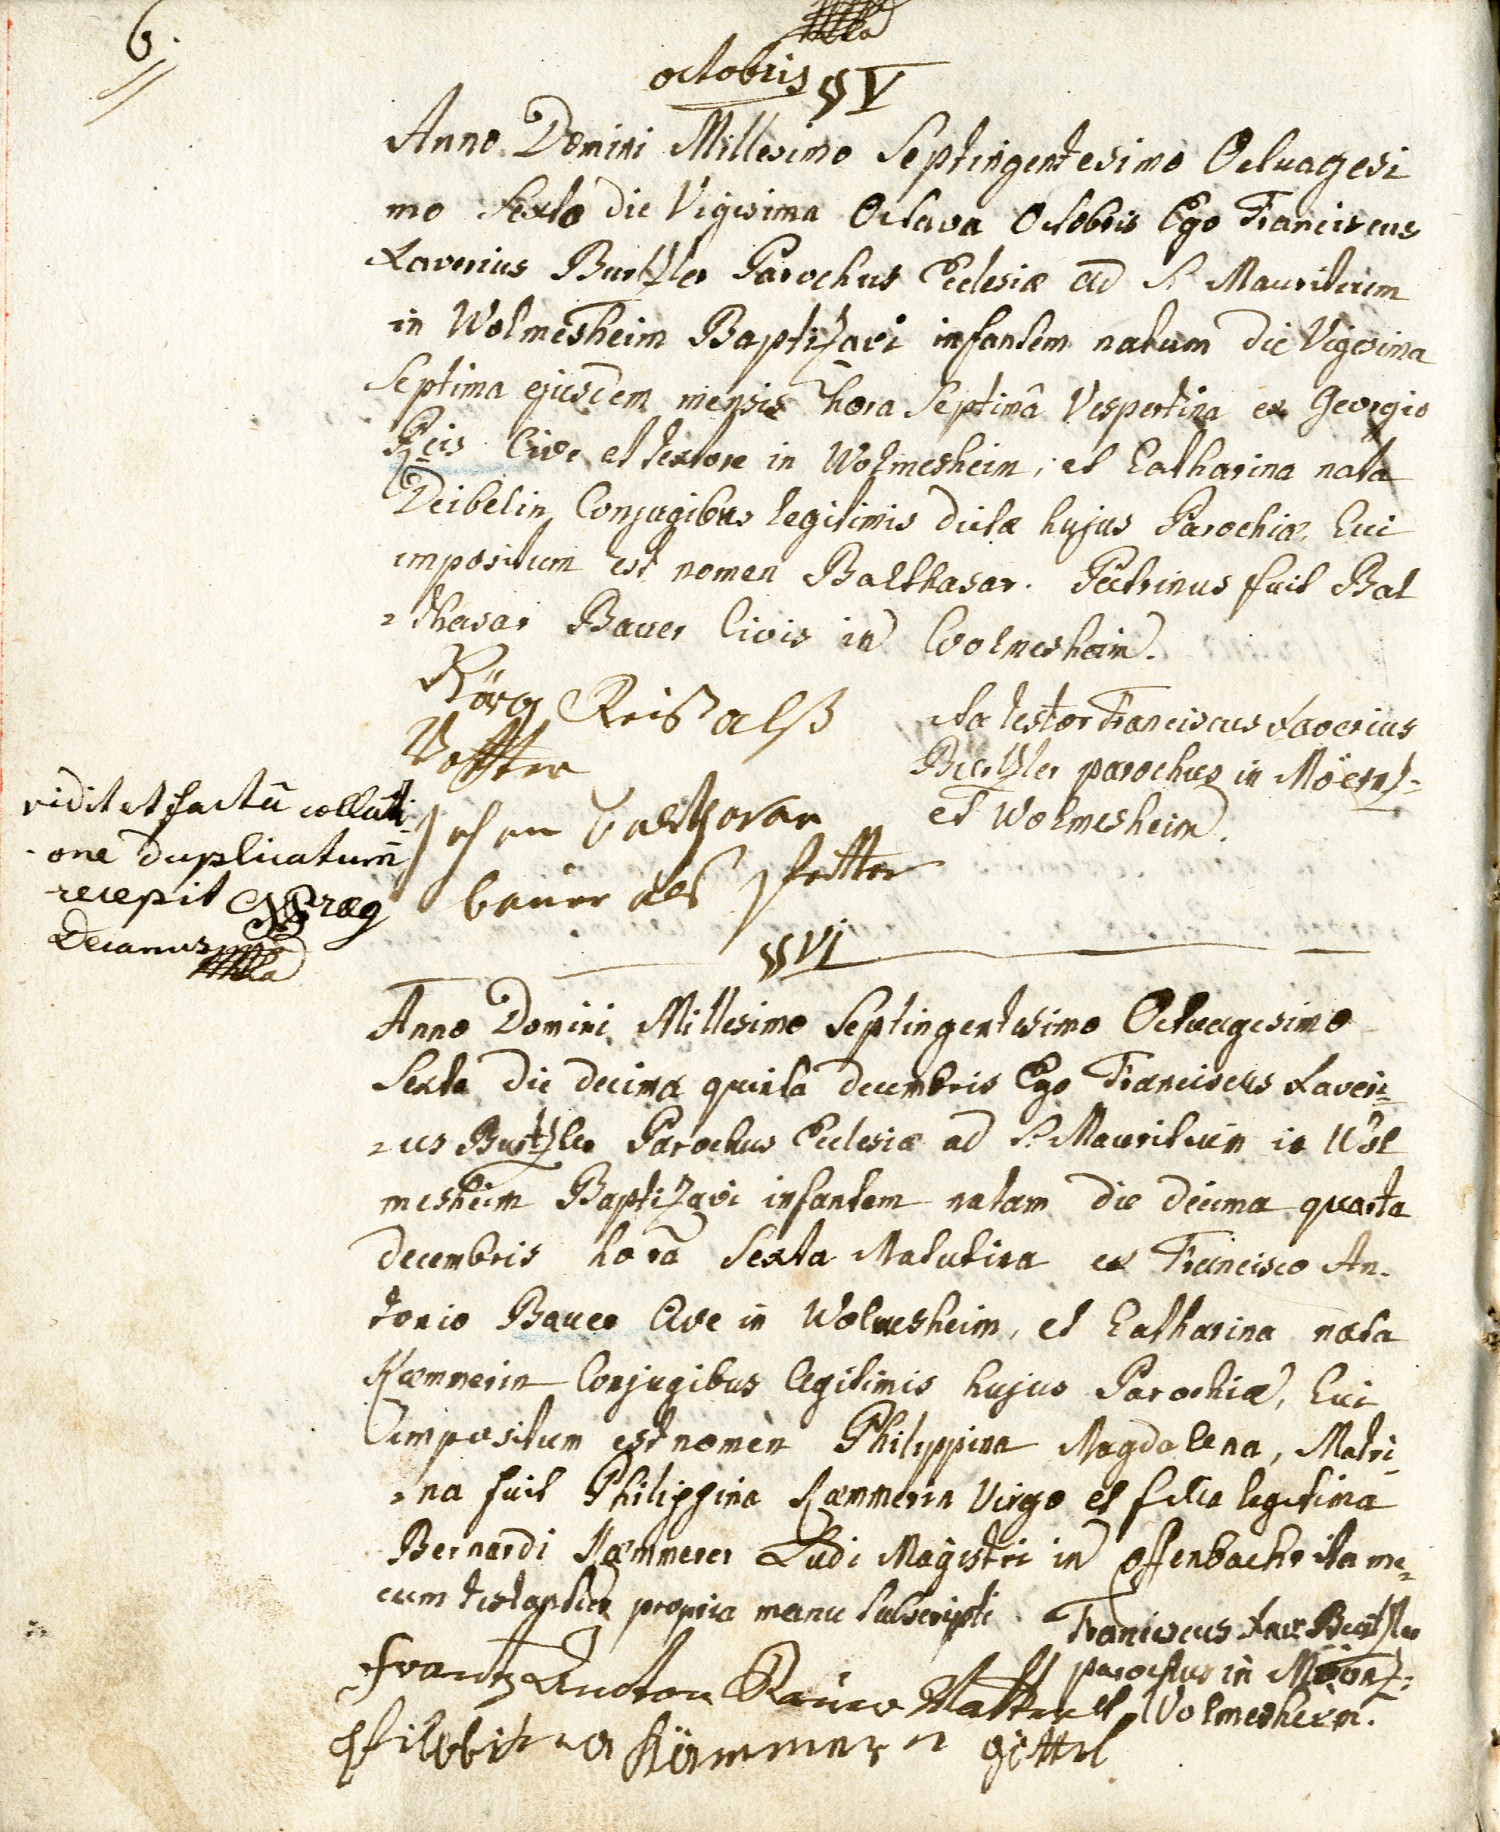 6.
octobris §V
Anno Domini Millesimo Septingentesimo Octuagesi
mo Sexto die Vigesima Octava Octobris Ego Franciscus
Xaverius Burtzler Parochus Ecclesiæ ad S. Mauritium
in Wolmesheim Baptizavi infantem natum die Vigesima
Septima ejusdem mensis hora Septimâ Vespertina ex Georgio
Reis Cive et textore in Wolmesheim, et Catharina nata
Deibelin Conjugibus legitimis dictæ hujus Parochiæ, Cui
impositum est nomen Balthasar. Patrinus fuit Bal
= thasar Bauer Civis in Wolmesheim.
Jörg Reiß alß
Vatter
ita testor Franciscus Xaverius
Burtzler parochus in Mörtz=
et Wolmesheim.
balthasar
bauer als pfetter
vidit et factū collati-
-one duplicatum
recepit
Decanus
§VI
Anno Domini Millesimo Septingentesimo Octuagesimo
Sexto die decima quinta decembris Ego Franciscus Xaveri=
= us Burtzler Parochus Ecclesiæ ad S. Mauritium in Wol
mesheim Baptizavi infantem natam die decima quarta
decembris hora Sexta Matutina ex Francisco An-
tonio Bauer Cive in Wolmesheim, et Catharina nata
Kæmmerin Conjugibus legitimis hujus Parochiæ, Cui
impositum est nomen Philippina Magdalena, Matri-
= na fuit Philippina Kæmmerin Virgo et filia legitima
Bernardi Kæmmerer Ludi Magistri in Offenbach ita me=
cum propria manu subscripti. Franciscus Xav: Burtzler
parochus in Mörtz=
et Wolmesheim.
Frantz Anton Bauer Vatter
Philibbina Kämmerin göttel